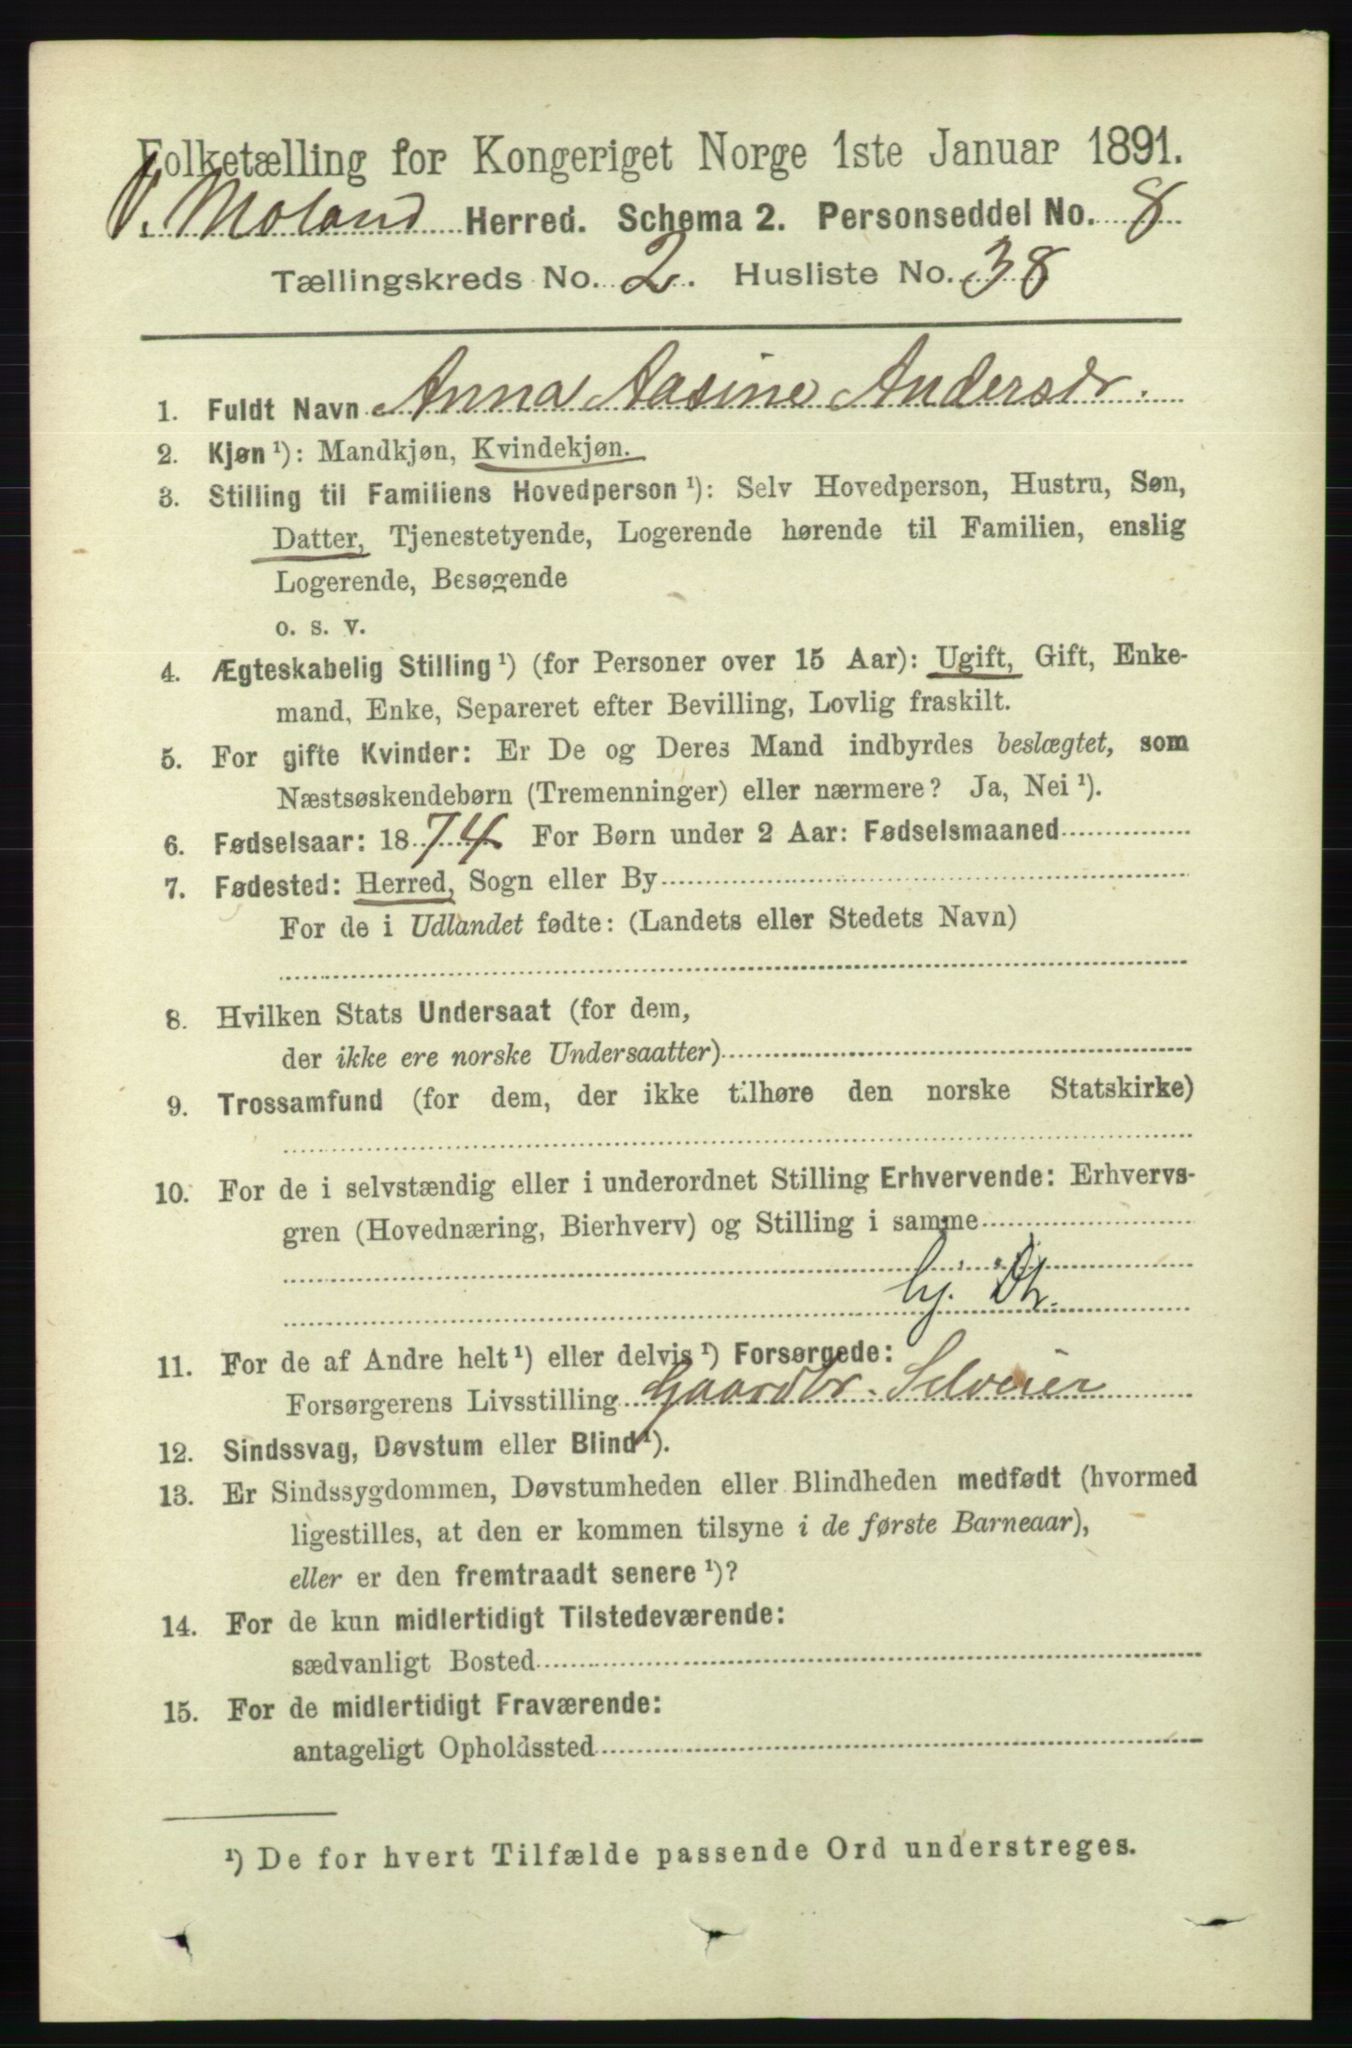 Folketælling for Kongeriget Norge 1ste Januar 1891.
V. Moland Herred. Schema 2. Personseddel No. 8
Tællingskreds No. 2. Husliste No. 38
1. Fuldt Navn Anna Aasine Andersdr.
2. Kjøn ¹): Mandkjøn, Kvindekjøn.
3. Stilling til Familiens Hovedperson ¹): Selv Hovedperson, Hustru, Søn,
Datter, Tjenestetyende, Logerende hørende til Familien, enslig
Logerende, Besøgende
o. s. v.
4. Ægteskabelig Stilling ¹) (for Personer over 15 Aar): Ugift, Gift, Enke-
mand, Enke, Separeret efter Bevilling, Lovlig fraskilt.
5. For gifte Kvinder: Er De og Deres Mand indbyrdes beslægtet, som
Næstsøskendebørn (Tremenninger) eller nærmere? Ja, Nei ¹).
6. Fødselsaar: 1874 For Børn under 2 Aar: Fødselsmaaned
7. Fødested: Herred, Sogn eller By
For de i Udlandet fødte: (Landets eller Stedets Navn)
8. Hvilken Stats Undersaat (for dem,
der ikke ere norske Undersaatter)
9. Trossamfund (for dem, der ikke tilhøre den norske Statskirke)
10. For de i selvstændig eller i underordnet Stilling Erhvervende: Erhvervs-
gren (Hovednæring, Bierhverv) og Stilling i samme
11. For de af Andre helt ¹) eller delvis ¹) Forsørgede:
Forsørgerens Livsstilling Gaardbr. Selveier
12. Sindssvag, Døvstum eller Blind ¹).
13. Er Sindssygdommen, Døvstumheden eller Blindheden medfødt (hvormed
ligestilles, at den er kommen tilsyne i de første Barneaar),
eller er den fremtraadt senere ¹)?
14. For de kun midlertidigt Tilstedeværende:
sædvanligt Bosted
15. For de midlertidigt Fraværende:
antageligt Opholdssted
¹) De for hvert Tilfælde passende Ord understreges.